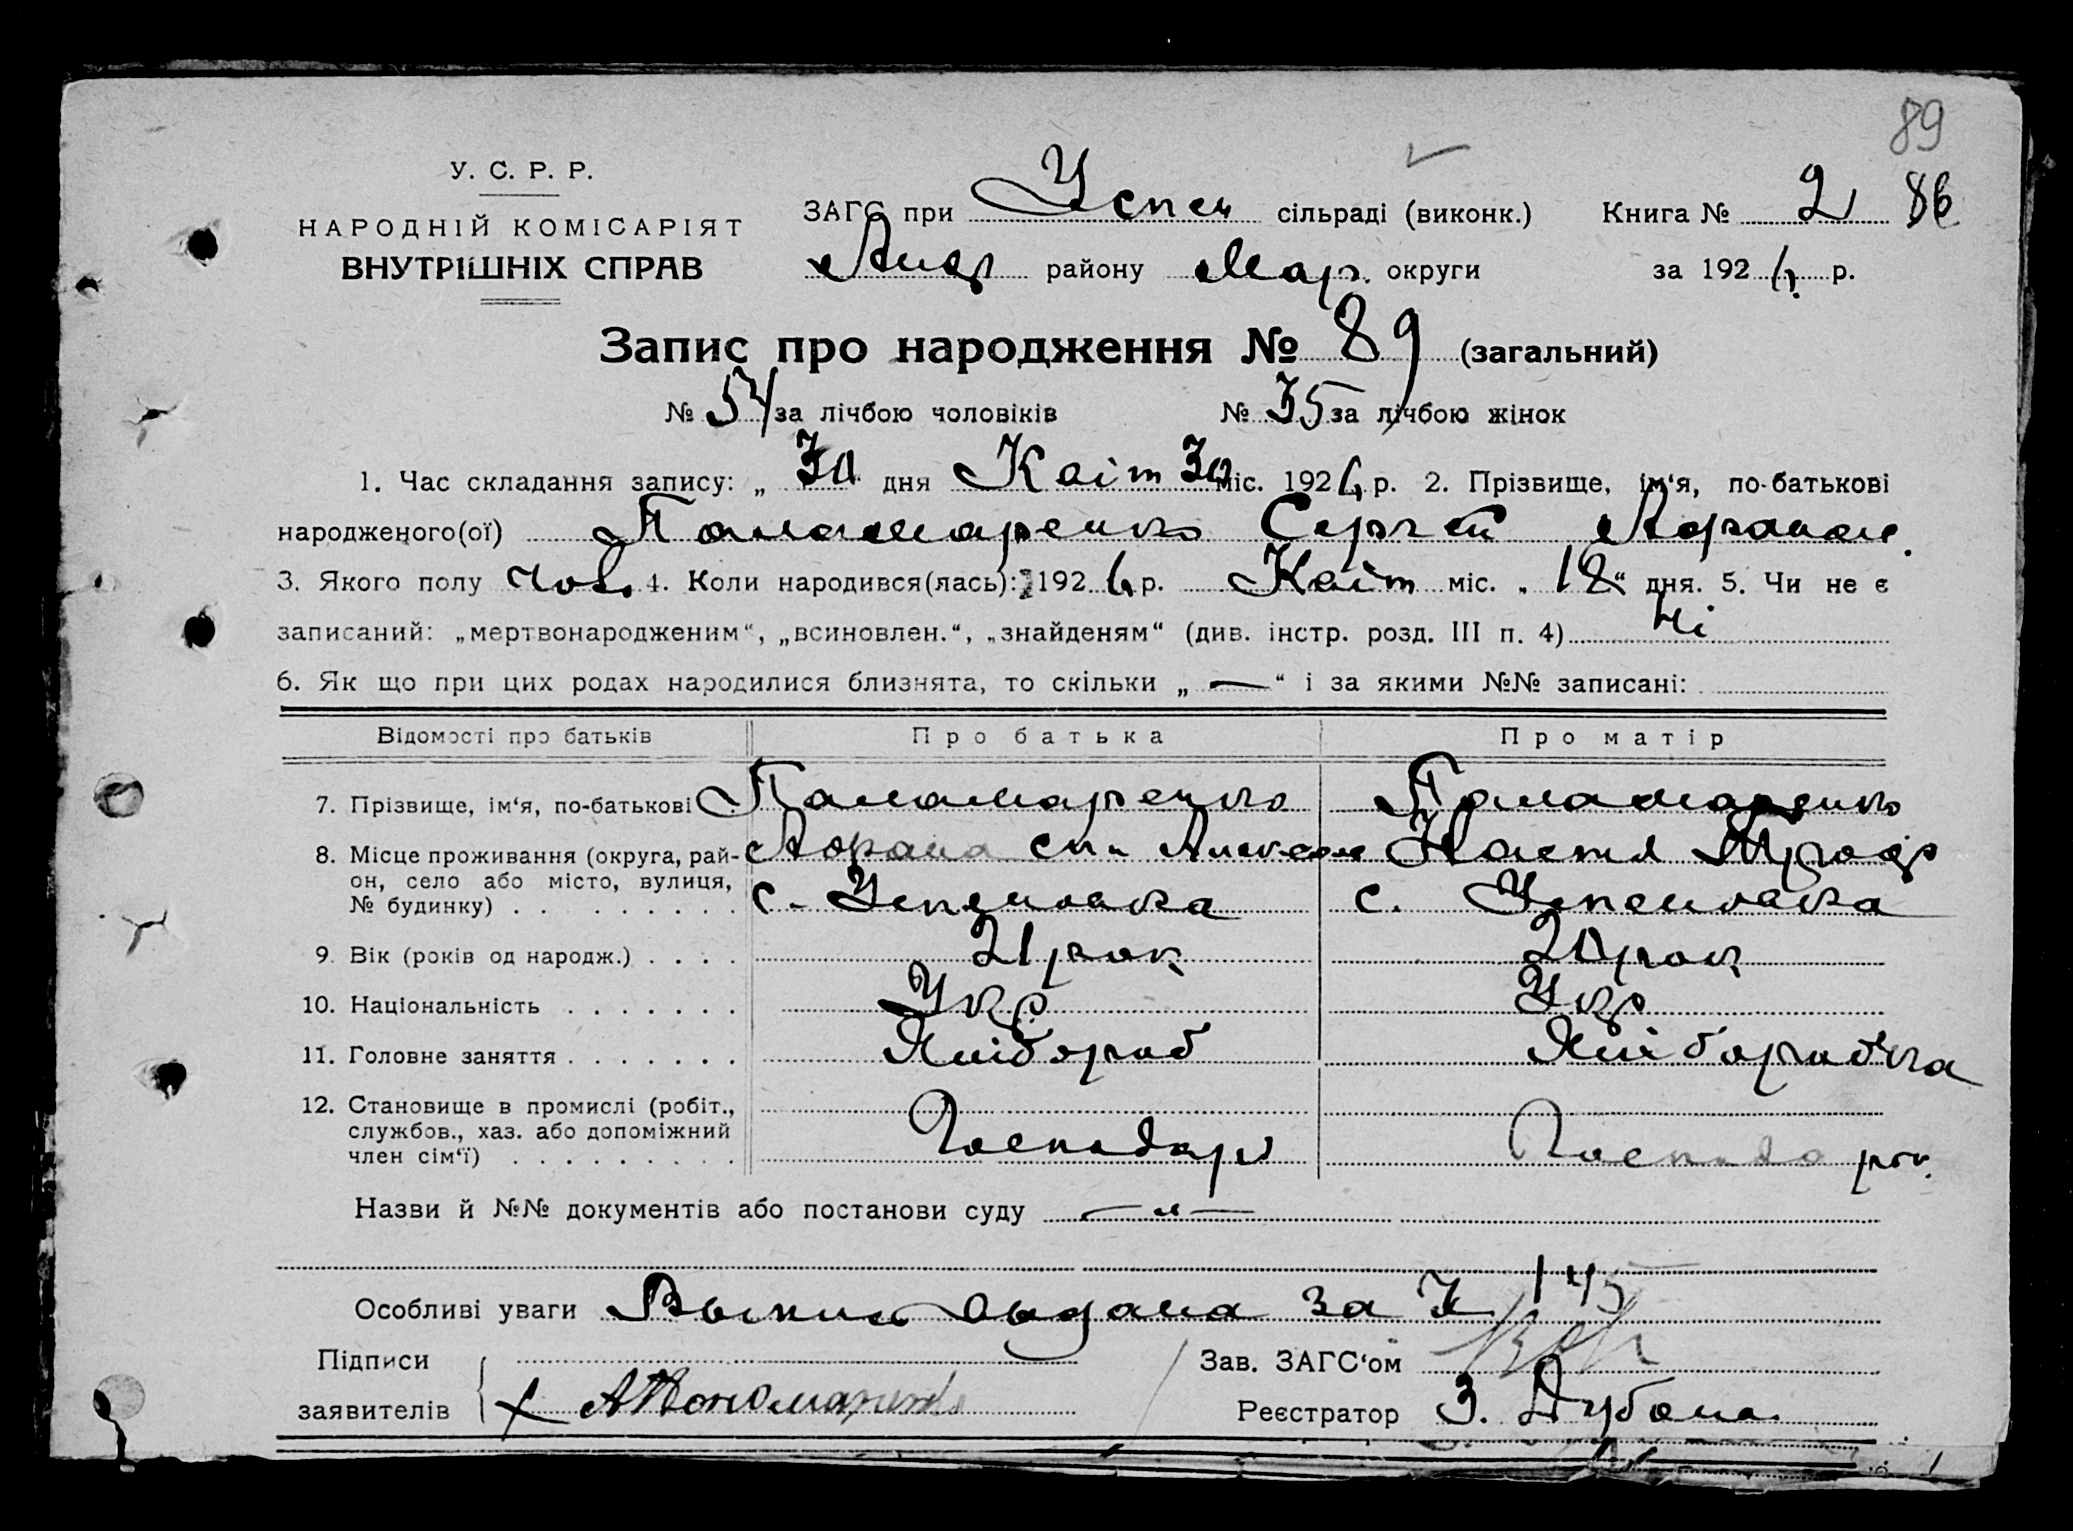 89
У. С. Р. Р.
НАРОДНІЙ КОМІСАРІЯТ
ВНУТРІШНІХ СПРАВ
ЗАГС при Успен сільраді (виконк.) Книга № 2 86
Андр району Мар. округи за 1926 р.
Запис про народження № 89 (загальний)
№ 54 за лічбою чоловіків № 35 за лічбою жінок
1. Час складання запису: „ 30 дня Квіт 30 міс. 1926 р. 2. Прізвище, ім‘я, по-батькові
народженого(ої) Паламаренко Сергей
3. Якого полу чол. 4. Коли народився(лась): 1926 р. Квіт міс. „ 18 “ дня. 5. Чи не є
записаний: „мертвонародженим“, „всиновлен.“, „знайденям“ (див. інстр. розд. III п. 4) Ні
6. Як що при цих родах народилися близнята, то скільки „ — “ і за якими №№ записані:
Відомості про батьків Про батька Про матір
7. Прізвище, ім‘я, по-батькові Паламаренко Паламаренко
8. Місце проживання (округа, рай- Настя
он, село або місто, вулиця, с. Успеновка с. Успеновка
№ будинку)
9. Вік (років од народж.) 21 рок 20 рок
10. Національність Укр Укр
11. Головне заняття Хліборob Хліборобка
12. Становище в промислі (робіт., Господарь Господар
службов., хаз. або допоміжний
член сім‘ї)
Назви й №№ документів або постанови суду — „ —
Особливі уваги Выпись выдана за № 145
Підписи Зав. ЗАГС‘ом
заявителів Реєстратор З. Дубона